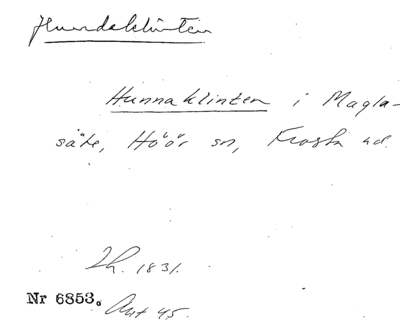 Hundaklinten
Hunnaklinten i Magla-
säte, Höör sn, Frosta hd.
Lh. 1831.
Nr 6853. Ant 45.